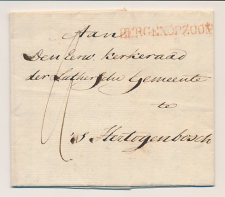 BERGEN OP ZOOM
Aan
Den Eerw. Kerkeraad
der Luthersche Gemeente
te
's Hertogenbosch